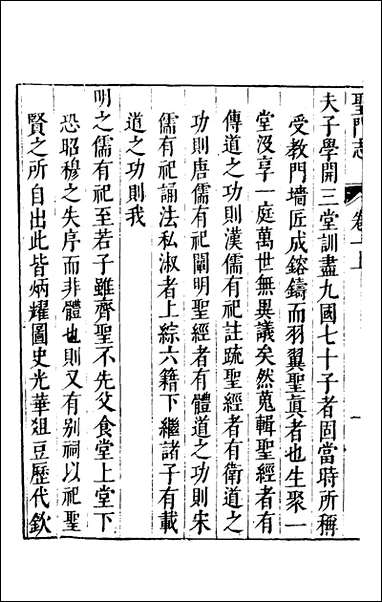 聖門志 卷一上 一
夫子學開三堂訓盡九國七十子者固當時所稱
受教門墻匠成鎔鑄而羽翼聖真者也生聚一
堂沒享一庭萬世無異議矣然蒐輯聖經者有
傳道之功則漢儒有祀註疏聖經者有衛道之
功則唐儒有祀闡明聖經者有體道之功則宋
儒有祀誦法私淑者上綜六籍下繼諸子有載
道之功則我
明之儒有祀至若子雖齊聖不先父食堂上堂下
恐昭穆之失序而非體也則又有別祠以祀聖
賢之所自出此皆炳耀圖史光華俎豆歷代欽